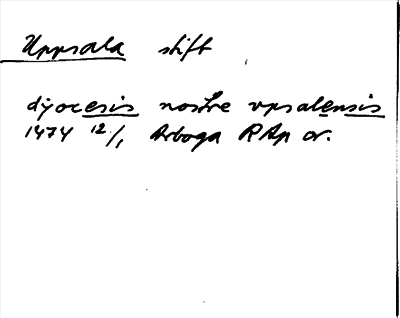 Uppsala stift
dyocesis nostre vpsalensis
1474 12/1 Arboga RAp or.